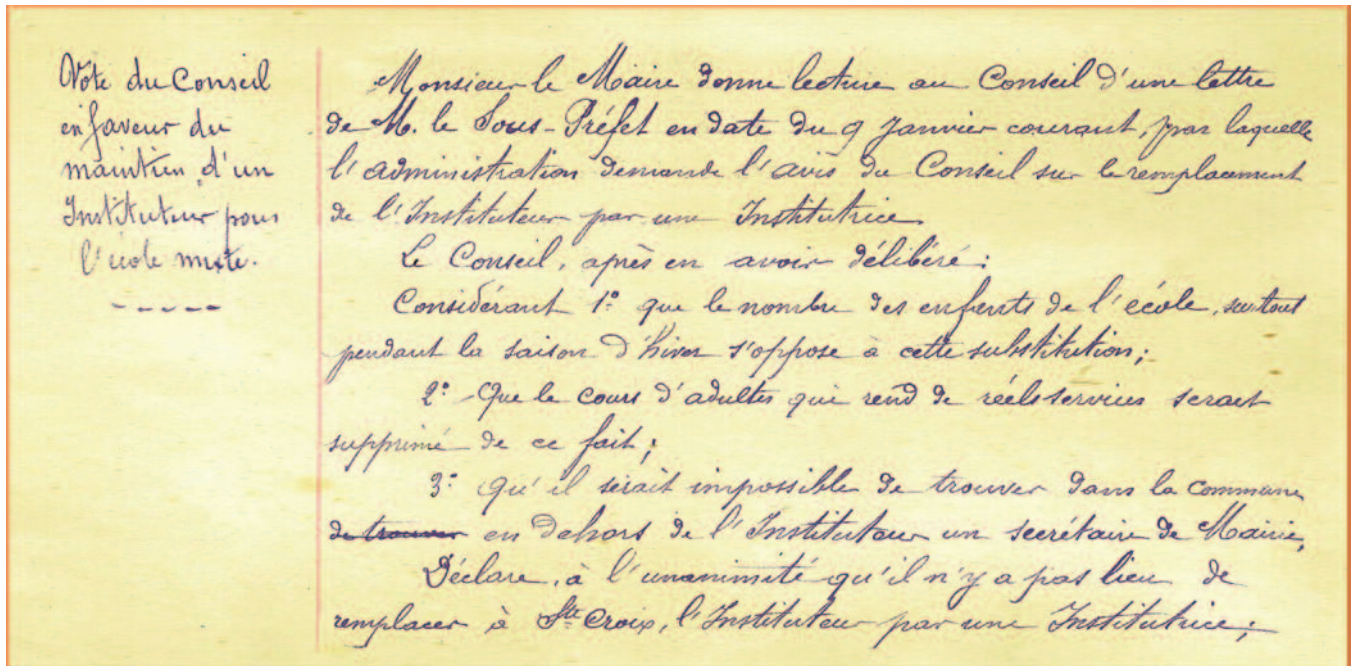 Vote du Conseil
en faveur du
maintien d'un
Instituteur pour
l'école mixte.
Monsieur le Maire donne lecture au Conseil d'une lettre
de M. le Sous-Préfet en date du 9 Janvier courant, par laquelle
l'administration demande l'avis du Conseil sur le remplacement
de l'Instituteur par une Institutrice.
Le Conseil, après en avoir délibéré;
Considérant 1° que le nombre des enfants de l'école, surtout
pendant la saison d'hiver s'oppose à cette substitution;
2° Que le cours d'adultes qui rend de réels services serait
supprimé de ce fait;
3° Qu'il serait impossible de trouver dans la commune
de trouver en dehors de l'Instituteur un secrétaire de Mairie,
Déclare, à l'unanimité qu'il n'y a pas lieu de
remplacer à Ste Croix, l'Instituteur par une Institutrice;